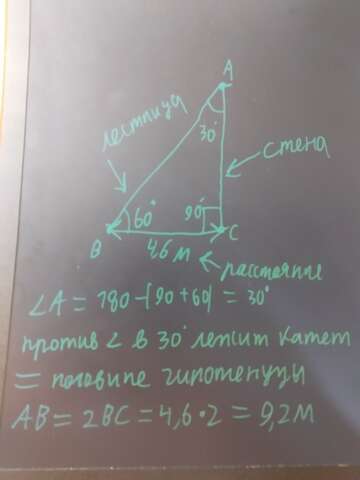 A
лестница
30°
стена
60°
90°
B
C
4,6 м
расстояние
∠A = 180-(90+60) = 30°
против ∠ в 30° лежит катет
= половине гипотенузы
AB = 2BC = 4,6·2 = 9,2м